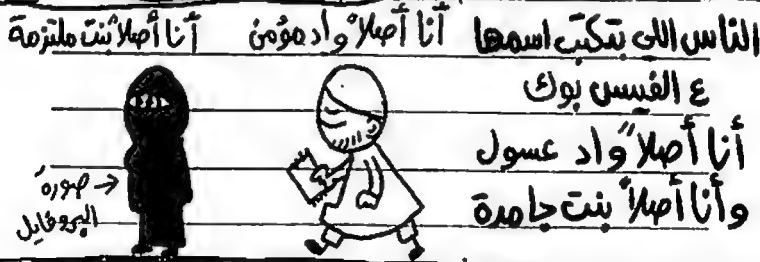 الناس اللى بتكتب اسمها
ع الفيس بوك
أنا أصلاً واد عسول
وأنا أصلاً بنت جامدة
أنا أصلاً واد مؤمن
أنا أصلاً بنت ملتزمة
صورة
البروفايل